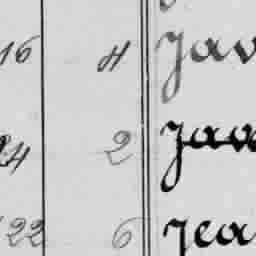 16 4 Jav
24 2 Jaw
22 6 Jea